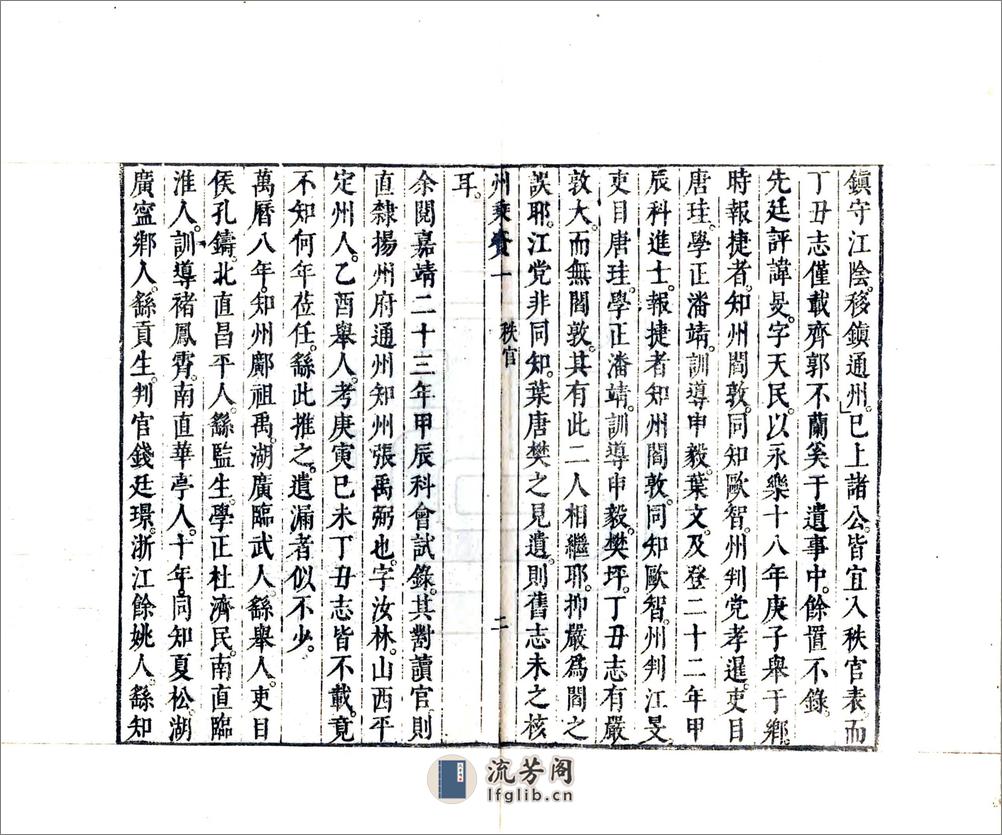 鎮守江陰。移鎮通州。」已上諸公。皆宜入秩官表而
丁丑志僅載齊郭不蘭奚于遺事中。餘置不錄。
先廷評諱旻。字天民。以永樂十八年庚子舉于鄉。
時報捷者。知州閻敦。同知歐智。州判党孝暹。吏目
唐珪。學正潘靖。訓導申毅。葉文。及登二十二年甲
辰科進士。報捷者知州閻敦。同知歐智。州判江旻
吏目唐珪。學正潘靖。訓導申毅。樊坪。丁丑志有嚴
敦大。而無閻敦。其有此二人相繼耶。抑嚴爲閻之
誤耶。江党非同知。葉唐樊之見遺。則舊志未之核
耳。
州乘資一 秩官 二
余閱嘉靖二十三年甲辰科會試錄。其對讀官則
直隸揚州府通州知州張禹弼也。字汝林。山西平
定州人。乙酉舉人。考庚寅己未丁丑志皆不載。竟
不知何年莅任。繇此推之。遺漏者似不少。
萬曆八年。知州鄺祖禹。湖廣臨武人。繇舉人。吏目
侯孔鑄。北直昌平人。繇監生。學正杜濟民。南直臨
淮人。訓導褚鳳霄。南直華亭人。十年。同知夏松。湖
廣寧鄉人。繇貢生。判官錢廷璟。浙江餘姚人。繇知
流芳阁
lfglib.cn